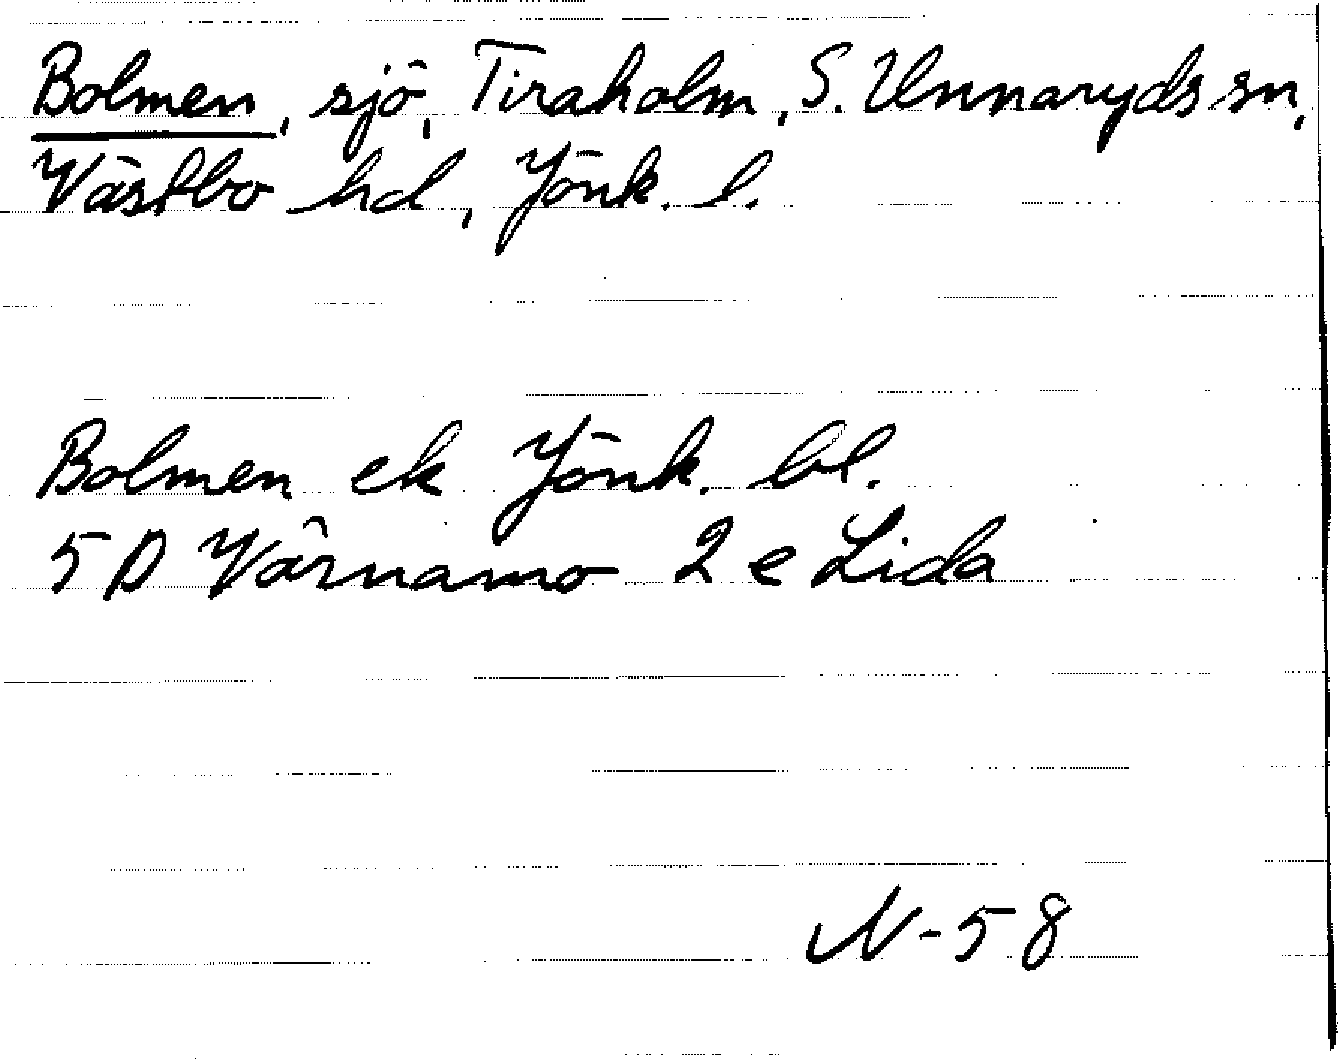 Bolmen, sjö, Tiraholm, S. Unnaryds sn,
Västbo hd, Jönk. l.
Bolmen ek Jönk. bl.
5 D Värnamo 2 e Lida
N-58